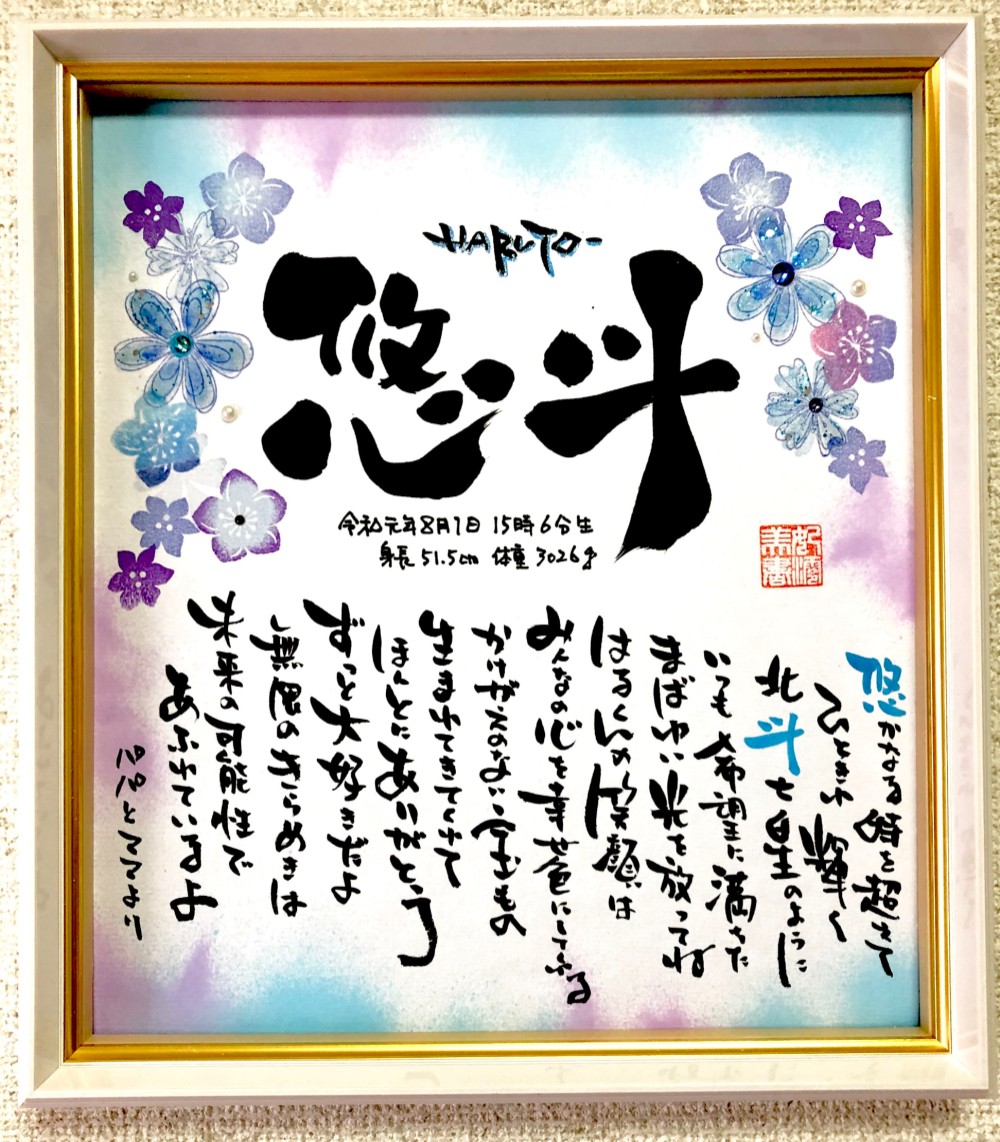 HARUTO
悠斗
令和元年8月1日 15時6分生
身長51.5cm 体重3026g
悠かなる時を超えて
ひときわ輝く
北斗七星のように
いつも希望に満ちた
まばゆい光を放ってね
はるくんの笑顔は
みんなの心を幸せ色にしてくれる
かけがえのない宝もの
生まれてきてくれて
ほんとにありがとう
ずっと大好きだよ
無限のきらめきは
未来の可能性で
あふれているよ
パパとママより